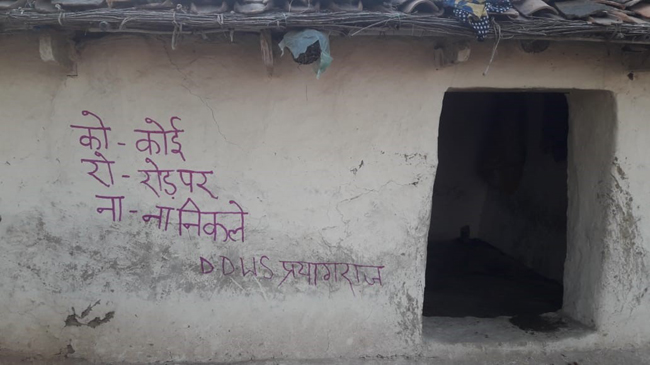 को - कोई
रो - रोड़ पर
ना - ना निकले
DDWS प्रयागराज